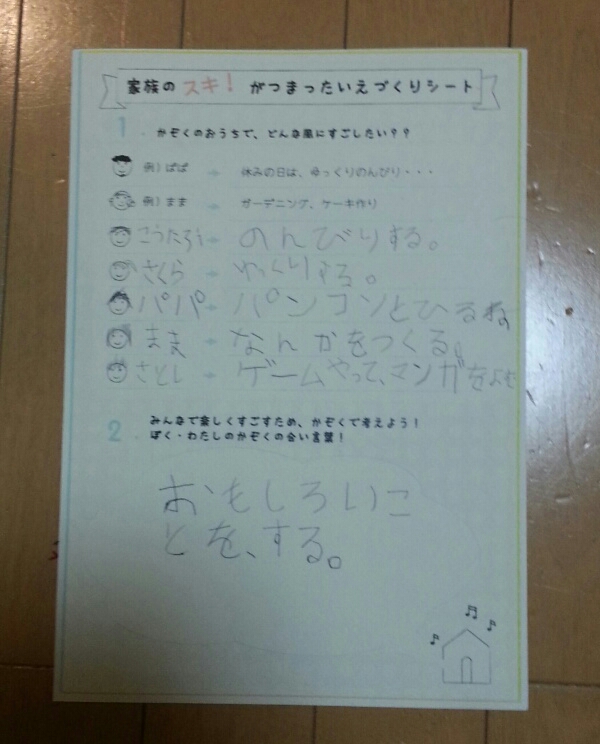 家族の スキ! がつまったいえづくりシート
1. かぞくのおうちで、どんな風にすごしたい??
例) ぱぱ 休みの日は、ゆっくりのんびり・・・
例) まま ガーデニング、ケーキ作り
こうたろう のんびりする。
さくら ゆっくりする。
パパ パソコンとひるね
まま なんかをつくる。
さとし ゲームやって、マンガをよむ
2. みんなで楽しくすごすため、かぞくで考えよう!
ぼく・わたしのかぞくの合い言葉!
おもしろいこ
とを、する。